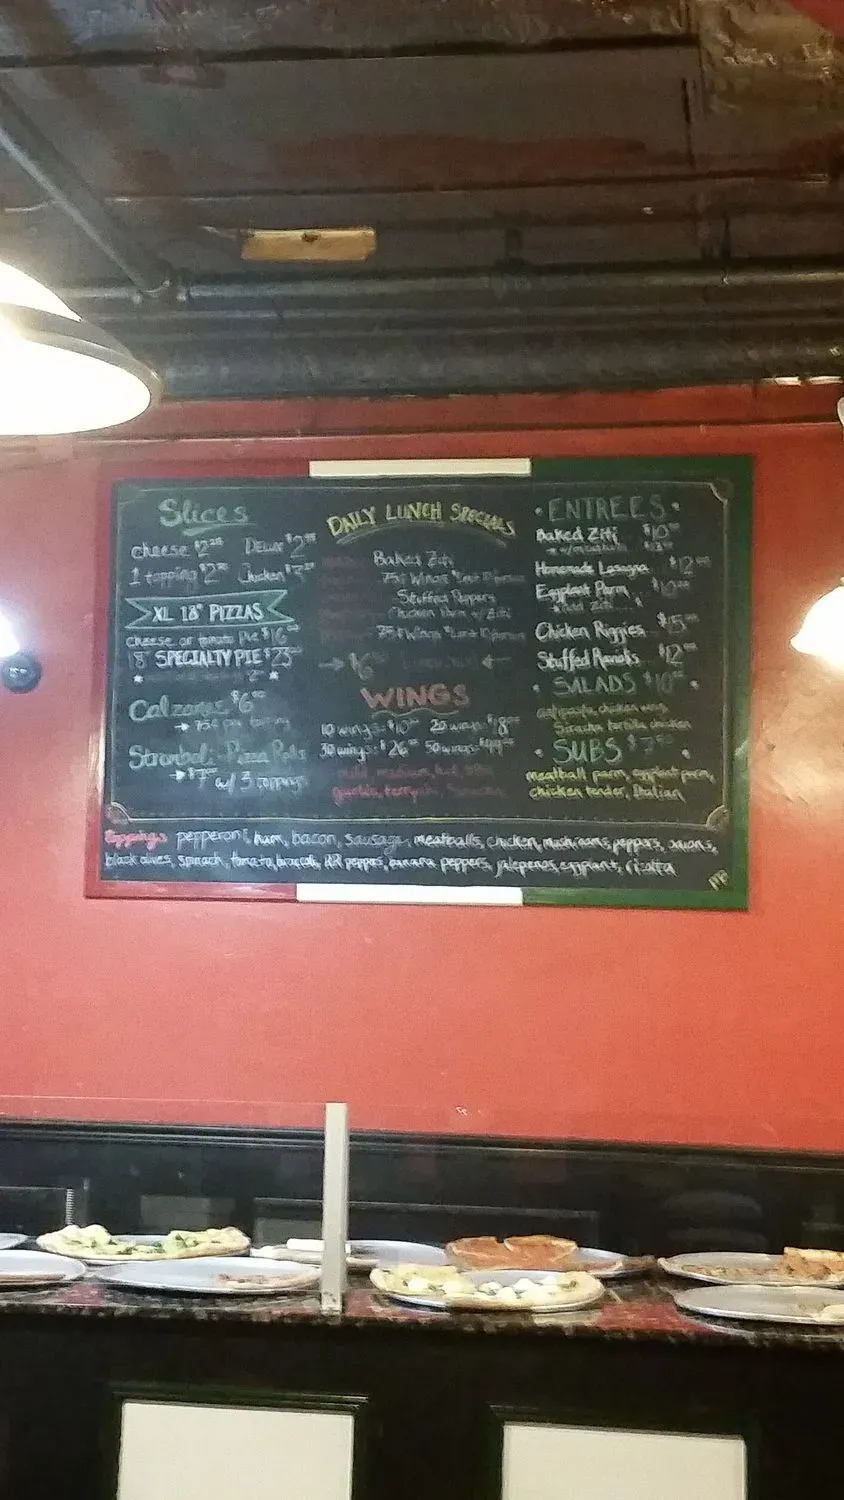 Slices
cheese $2 Delux $2
1 topping $2 Chicken $3
XL 18" PIZZAS
cheese or tomato Pie $16
18" SPECIALTY PIE $23
Calzones $6
→ 75¢ per topping
Stromboli - Pizza Rolls
→ $7 w/ 3 toppings
DAILY LUNCH SPECIALS
Baked Ziti
75¢ Wings
Stuffed Peppers
Chicken Parm w/ Ziti
75¢ Wings
→ $6 ←
WINGS
10 wings - $10 20 wings - $18
30 wings - $26 50 wings - $44
mild, medium, hot,
garlic, teryaki, Siracha
• ENTREES •
Baked Ziti $10
Homemade Lasagna $12
Eggplant Parm $10
add Ziti
Chicken Riggies $15
Stuffed Raviolis $12
• SALADS $10 •
antipasta, chicken wing
Siracha tortilla chicken
• SUBS $7 •
meatball parm, eggplant parm,
chicken tender, Italian
Toppings pepperoni, ham, bacon, sausage, meatballs, chicken, mushrooms, peppers, onions,
black olives, spinach, tomato, broccoli, HR peppers, banana peppers, jalepenos, eggplant, ricotta